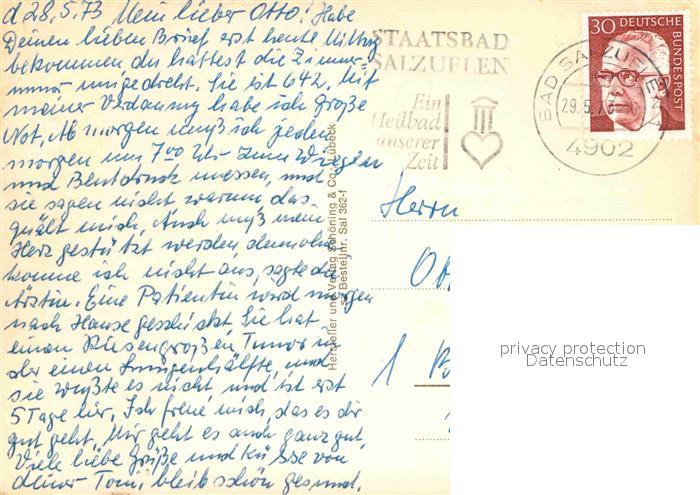 d 28.5.73 Mein lieber Otto! Habe
Deinen lieben Brief erst heute Mittag
bekommen du hattest die Zimmer-
nummer umgedreht. Sie ist 642. Mit
meiner Verdauung habe ich große
Not, Ab morgen muß ich jeden
morgen um 7 00 Uhr zum Wiegen
und Blutdruck messen, und
sie sagen nicht warum das
quält mich, Auch muß mein
Herz gestützt werden, dennoch
komme ich nicht aus, sagte die
Ärztin. Eine Patientin wird morgen
nach Hause geschickt, Sie hat
einen Riesengroßen Tumor in
der einen Lungenhälfte, und
sie wußte es nicht, und ist erst
5 Tage hier. Ich freue mich, das es dir
gut geht, Mir geht es auch ganz gut,
Viele liebe Grüße und Küsse von
deiner Toni bleib schön gesund.
Hersteller und Verlag Schöning & Co., Lübeck
Bestellnr. Sal 362-f
STAATSBAD
SALZUFLEN
Ein
Heilbad
unserer
Zeit
BAD SALZUFLEN 1
29.5.73
4902
30 DEUTSCHE
BUNDESPOST
Herrn
1
privacy protection
Datenschutz